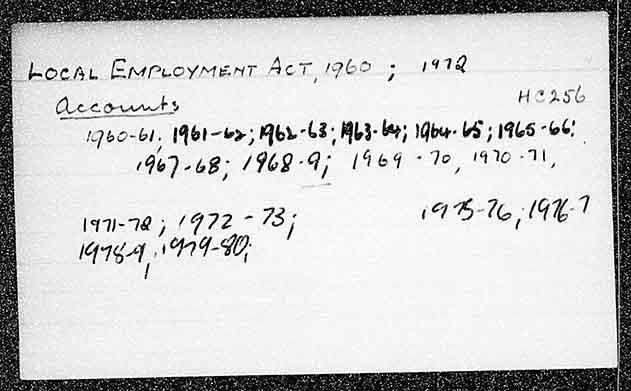 LOCAL EMPLOYMENT ACT, 1960 ; 1972
Accounts HC256
1960-61; 1961-62; 1962-63; 1963-64; 1964-65; 1965-66;
1967-68; 1968-9; 1969-70, 1970-71,
1971-72; 1972-73; 1975-76; 1976-7
1978-9; 1979-80;